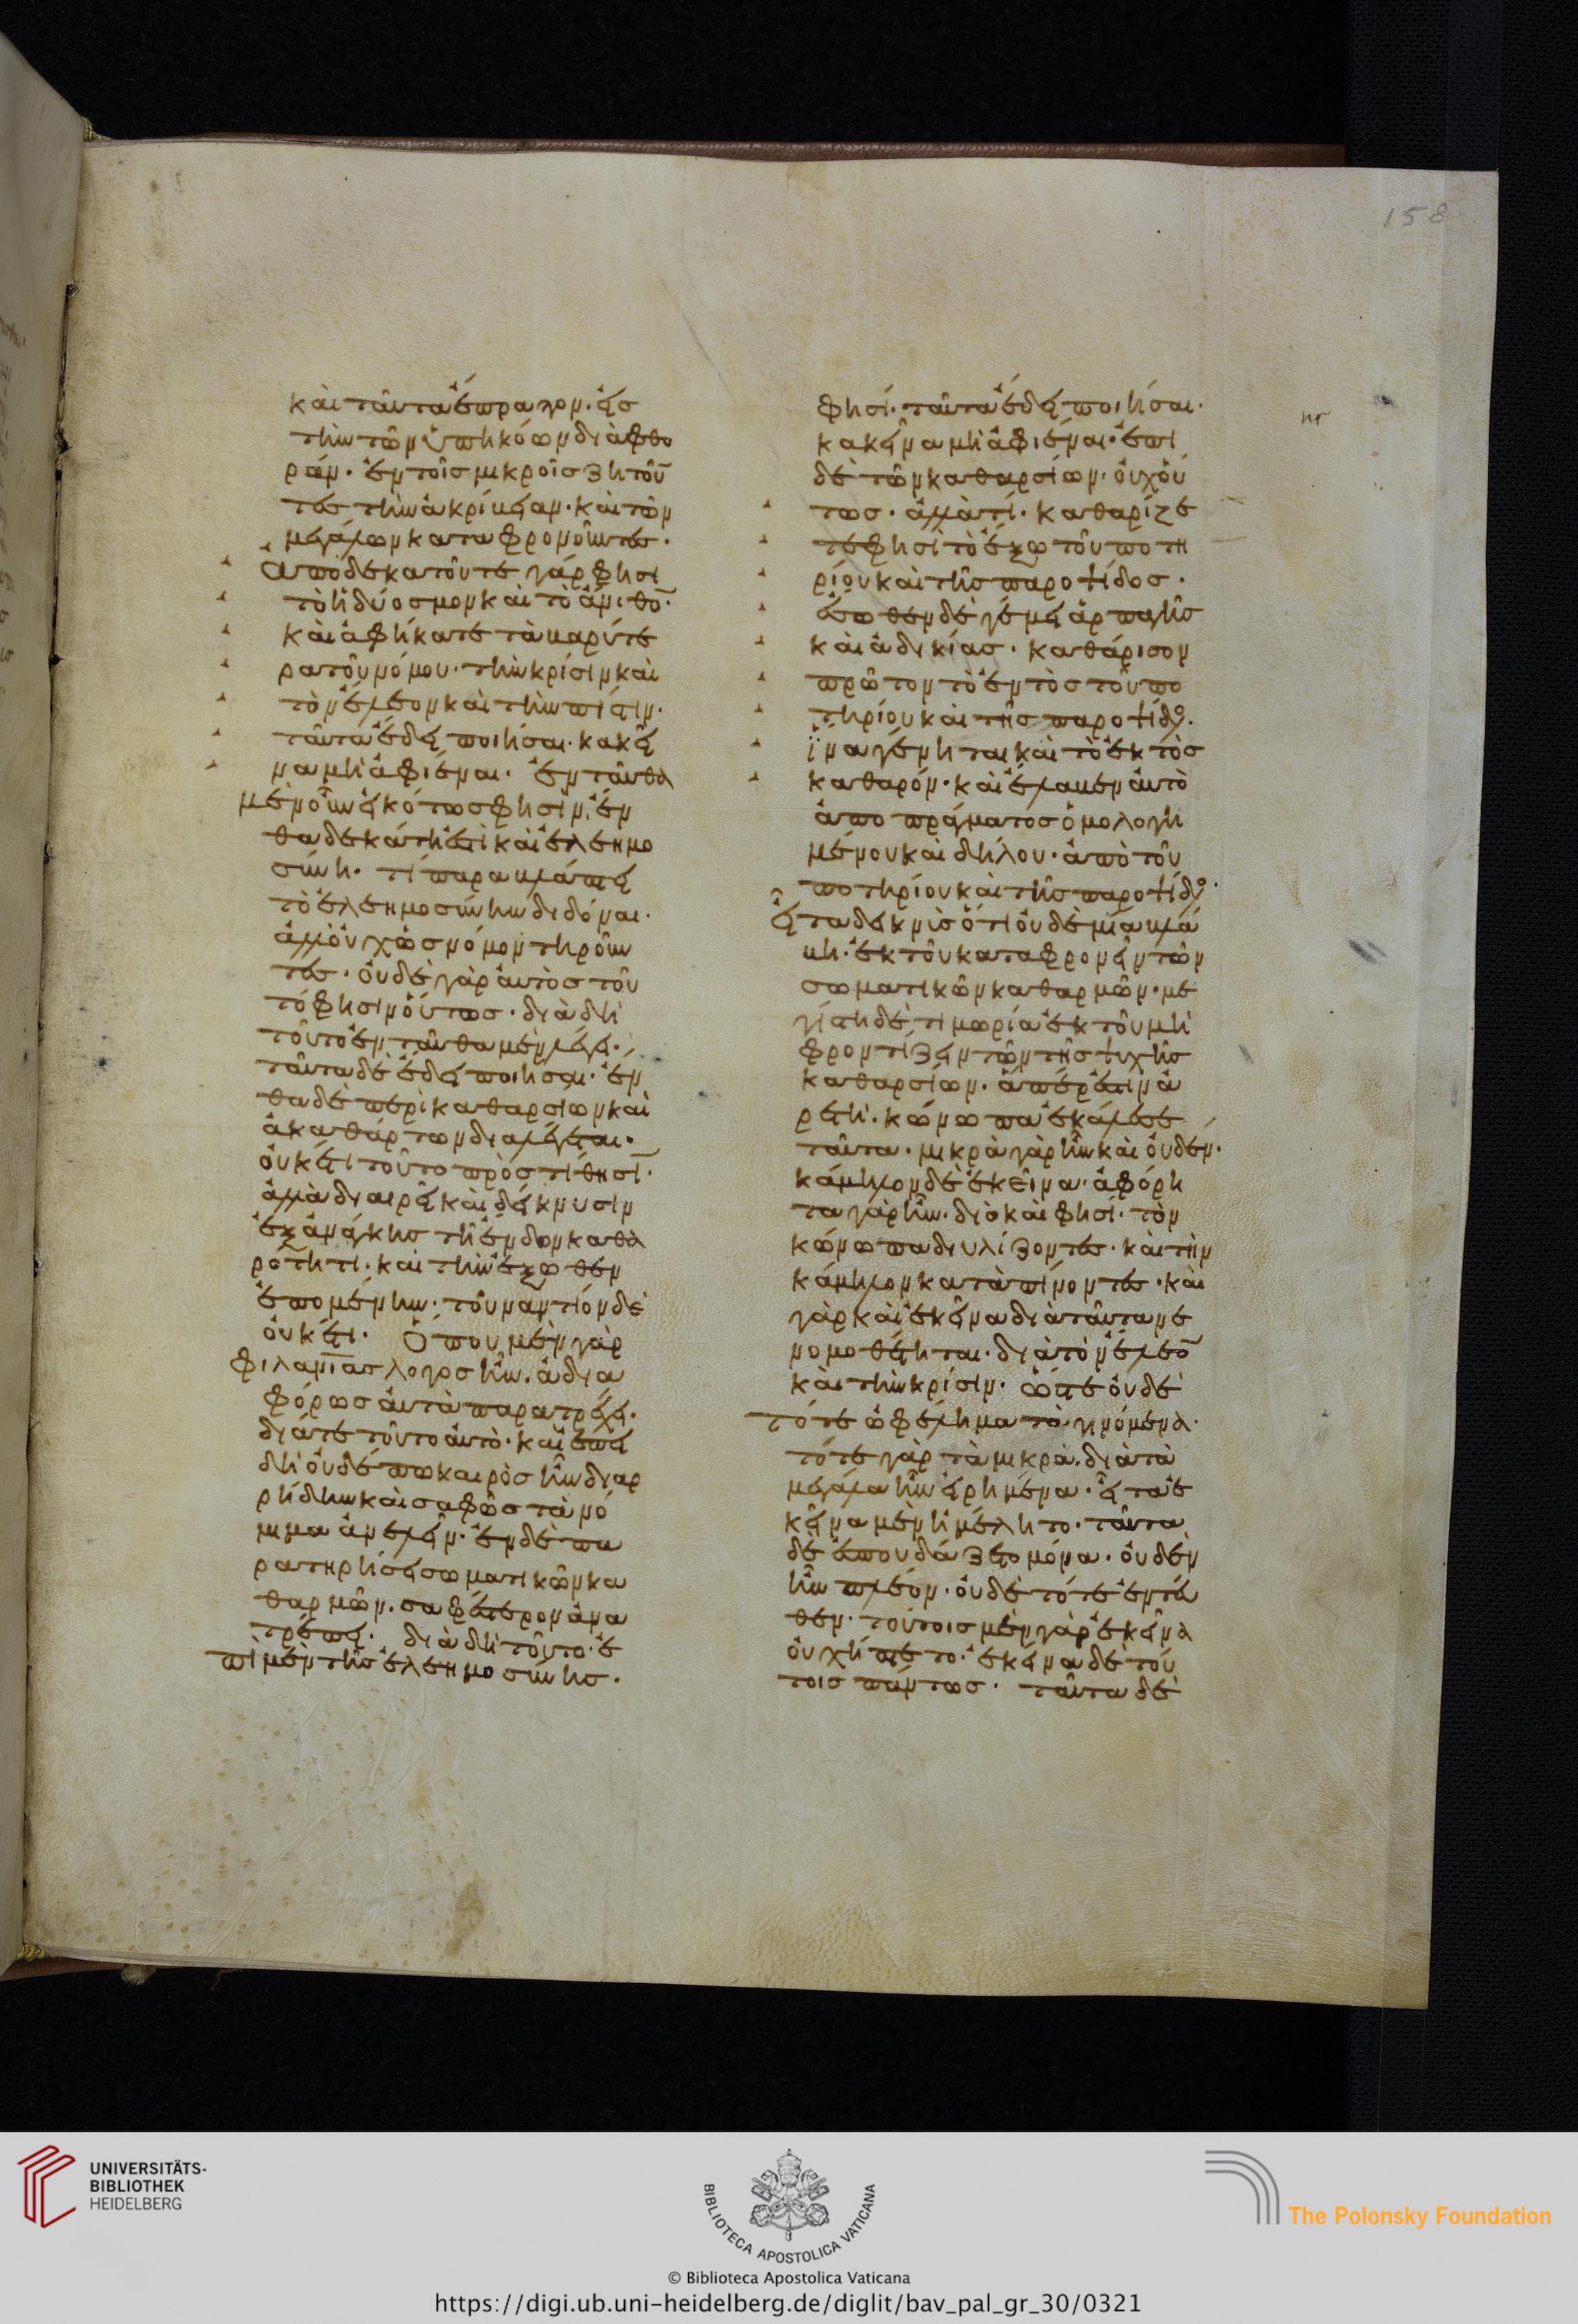 158
καὶ ταῦτα ἔπραττον· εἰς
τὴν τῶν ὑπηκόων διαφθο
ράν· ἐν τοῖς μικροῖς ζητοῦν
τες τὴν ἀκρίβειαν· καὶ τῶν
μεγάλων καταφρονοῦντες·
Ἀποδεκατοῦτε γάρ φησι
τὸ ἡδύοσμον καὶ τὸ ἄνιθον·
καὶ ἀφήκατε τὰ βαρύτε
ρα τοῦ νόμου· τὴν κρίσιν καὶ
τὸν ἔλεον καὶ τὴν πίστιν·
ταῦτα ἔδει ποιῆσαι· κἀκεῖ
να μὴ ἀφιέναι· ἐνταῦθα
μὲν οὖν εἰκότως φησίν· ἔν
θα δεκάτη ἐστὶ καὶ ἐλεημο
σύνη· τί παραβλάπτει
τὸ ἐλεημοσύνην διδόναι·
ἀλλ' οὐχ ὡς νόμον τηροῦν
τες· οὐδὲ γὰρ αὐτὸς τοῦ
τό φησιν οὕτως· διὰ δὴ
τοῦτο ἐνταῦθα μὲν λέγει·
ταῦτα δὲ ἔδει ποιῆσαι· ἔν
θα δὲ περὶ καθαρσίων καὶ
ἀκαθάρτων διαλέγεται·
οὐκέτι τοῦτο προστίθησιν·
ἀλλὰ διαιρεῖ καὶ δείκνυσιν
ἐξ ἀνάγκης τῇ ἔνδον καθα
ρότητι· καὶ τὴν ἔξωθεν
ἑπομένην· τοὐναντίον δὲ
οὐκέτι· Ὅπου μὲν γὰρ
φιλανίας λόγος ἦν· ἀδια
φόρως αὐτὰ παρατρέχει·
διά τε τοῦτο αὐτὸ· καὶ ἐπεὶ
δὴ οὐδέπω καιρὸς ἦν διαρ
ρήδην καὶ σαφῶς τὰ νό
μιμα ἀνελεῖν· ἐν δὲ πα
ρατηρήσει σωματικῶν κα
θαρμῶν· σαφέστερον ἀνα
τρέπει· διὰ δὴ τοῦτο· ἐ
πὶ μὲν τῆς ἐλεημοσύνης·
φησί· ταῦτα ἔδει ποιῆσαι·
κἀκεῖνα μὴ ἀφιέναι· ἐπὶ
δὲ τῶν καθαρσίων· οὐχ οὕ
τως· ἀλλὰ τί· καθαρίζε
τέ φησι τὸ ἔξω τοῦ ποτη
ρίου καὶ τῆς παροψίδος·
ἔσωθεν δὲ γέμει ἁρπαγῆς
καὶ ἀδικίας· καθάρισον
πρῶτον τὸ ἐντὸς τοῦ πο
τηρίου καὶ τῆς παροψίδος·
ἵνα γένηται καὶ τὸ ἐκτὸς
καθαρόν· καὶ ἔλαβεν αὐτὸ
ἀπὸ πράγματος ὁμολογη
μένου καὶ δήλου· ἀπὸ τοῦ
ποτηρίου καὶ τῆς παροψίδος·
εἶτα δεικνὺς ὅτι οὐδὲ μία βλά
βη· ἐκ τοῦ καταφρονεῖν τῶν
σωματικῶν καθαρμῶν· με
γίστη δὲ τιμωρία ἐκ τοῦ μὴ
φροντίζειν τῶν τῆς ψυχῆς
καθαρσίων· ἅπερ ἐστὶν ἀ
ρετή· κώνωπα ἐκάλεσε
ταῦτα· μικρὰ γὰρ ἦν καὶ οὐδέν·
κάμηλον δὲ ἐκεῖνα· ἀφόρη
τα γὰρ ἦν· διὸ καί φησι· τὸν
κώνωπα διυλίζοντες· καὶ τὴν
κάμηλον καταπίνοντες· καὶ
γὰρ καὶ ἐκεῖνα διὰ ταῦτα νε
νομοθέτηται· διὰ τὸν ἔλεον
καὶ τὴν κρίσιν· ὥστε οὐδὲ
τότε ὠφέλημα τὰ γινόμενα·
τότε γὰρ τὰ μικρὰ· διὰ τὰ
μεγάλα ἦν εἰρημένα· εἶτα ἐ
κεῖνα μὲν ἠμέλητο· ταῦτα
δὲ ἐσπουδάζετο μόνα· οὐδὲν
ἦν πλέον· οὐδὲ τότε ἐντεῦ
θεν· τούτοις μὲν γὰρ ἐκεῖνα
οὐχ ἥπετο· ἐκείνα δὲ τού
τοις πάντως· ταῦτα δὲ
UNIVERSITÄTS-
BIBLIOTHEK
HEIDELBERG
BIBLIOTECA APOSTOLICA VATICANA
The Polonsky Foundation
© Biblioteca Apostolica Vaticana
https://digi.ub.uni-heidelberg.de/diglit/bav_pal_gr_30/0321